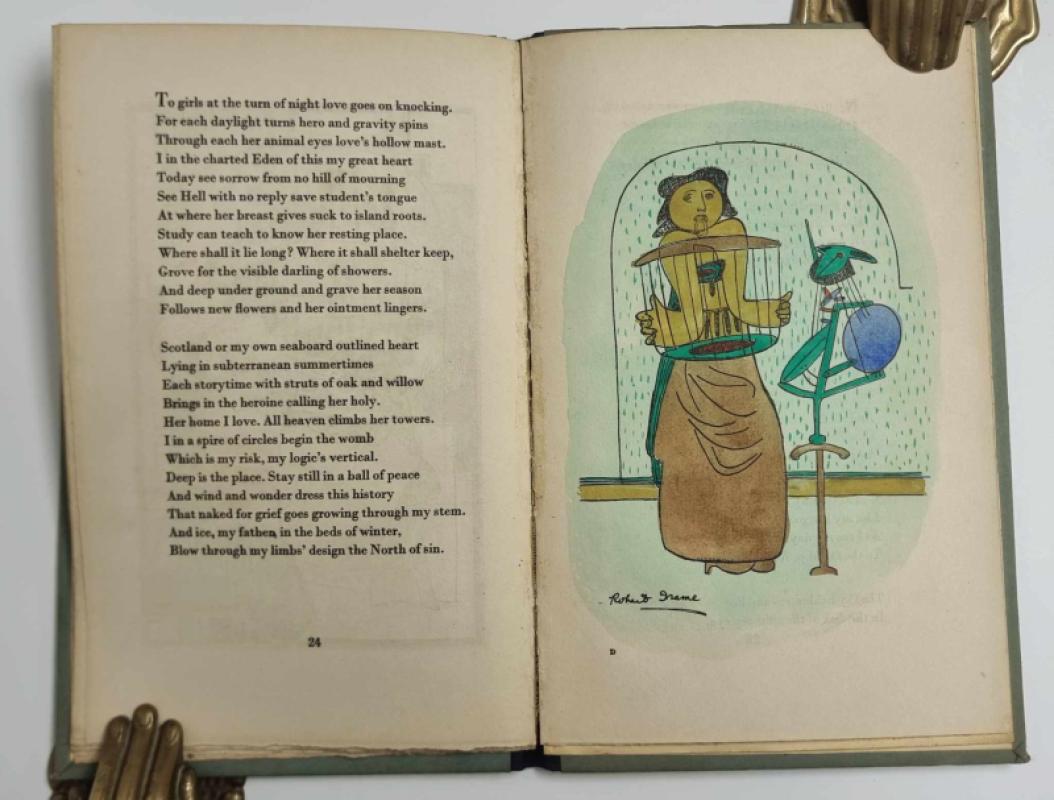 To girls at the turn of night love goes on knocking.
For each daylight turns hero and gravity spins
Through each her animal eyes love's hollow mast.
I in the charted Eden of this my great heart
Today see sorrow from no hill of mourning
See Hell with no reply save student's tongue
At where her breast gives suck to island roots.
Study can teach to know her resting place.
Where shall it lie long? Where it shall shelter keep,
Grove for the visible darling of showers.
And deep under ground and grave her season
Follows new flowers and her ointment lingers.
Scotland or my own seaboard outlined heart
Lying in subterranean summertimes
Each storytime with struts of oak and willow
Brings in the heroine calling her holy.
Her home I love. All heaven climbs her towers.
I in a spire of circles begin the womb
Which is my risk, my logic's vertical.
Deep is the place. Stay still in a ball of peace
And wind and wonder dress this history
That naked for grief goes growing through my stem.
And ice, my father, in the beds of winter,
Blow through my limbs' design the North of sin.
24
Robert Frame
D